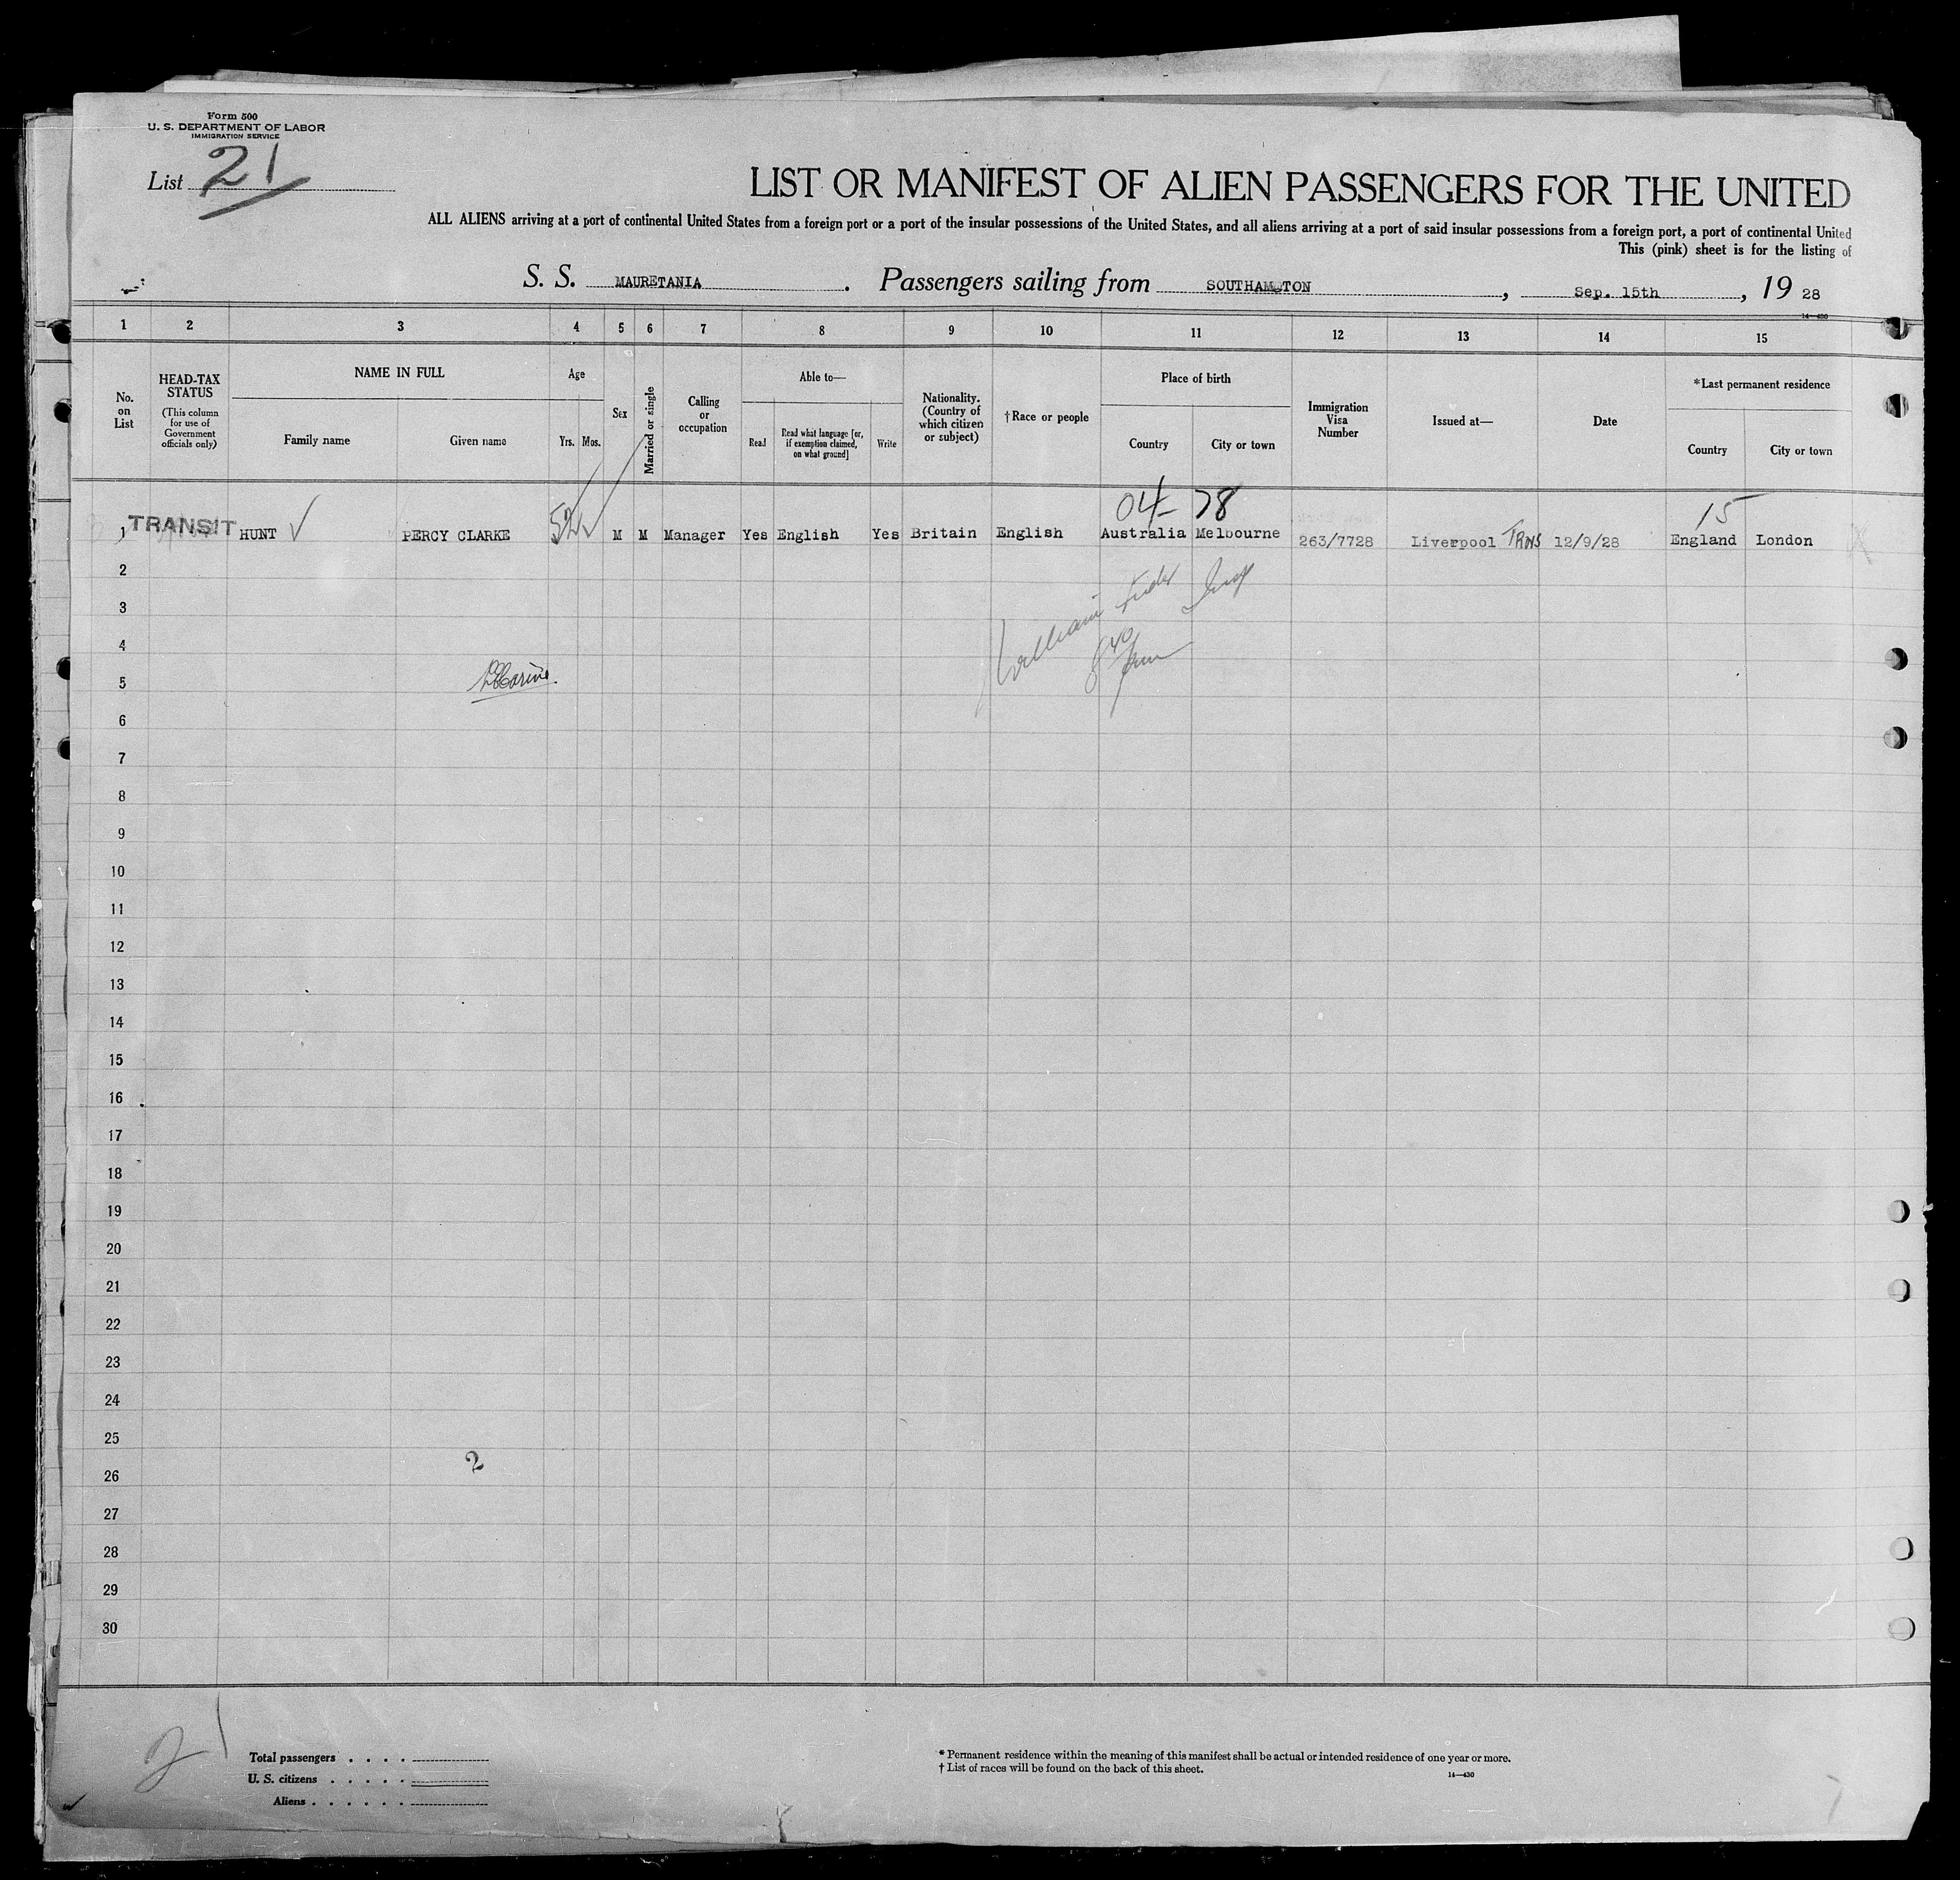 Form 500
U. S. DEPARTMENT OF LABOR
IMMIGRATION SERVICE
List 21
LIST OR MANIFEST OF ALIEN PASSENGERS FOR THE UNITED
ALL ALIENS arriving at a port of continental United States from a foreign port or a port of the insular possessions of the United States, and all aliens arriving at a port of said insular possessions from a foreign port, a port of continental United
This (pink) sheet is for the listing of
S. S. MAURETANIA . Passengers sailing from SOUTHAMPTON , Sep. 15th , 19 28
14—430
1 2 3 4 5 6 7 8 9 10 11 12 13 14 15
No. on List
HEAD-TAX STATUS
(This column for use of Government officials only)
NAME IN FULL
Family name
Given name
Age
Yrs. Mos.
Sex
Married or single
Calling or occupation
Able to—
Read
Read what language [or, if exemption claimed, on what ground]
Write
Nationality. (Country of which citizen or subject)
†Race or people
Place of birth
Country
City or town
Immigration Visa Number
Issued at—
Date
*Last permanent residence
Country
City or town
04- 78
15
1 TRANSIT HUNT PERCY CLARKE 52 M M Manager Yes English Yes Britain English Australia Melbourne 263/7728 Liverpool TRNS 12/9/28 England London
2
3
4
5
6
7
8
9
10
11
12
13
14
15
16
17
18
19
20
21
22
23
24
25
2
26
27
28
29
30
21
Total passengers . . . .
U. S. citizens . . . . .
Aliens . . . . . .
* Permanent residence within the meaning of this manifest shall be actual or intended residence of one year or more.
† List of races will be found on the back of this sheet.
14—430